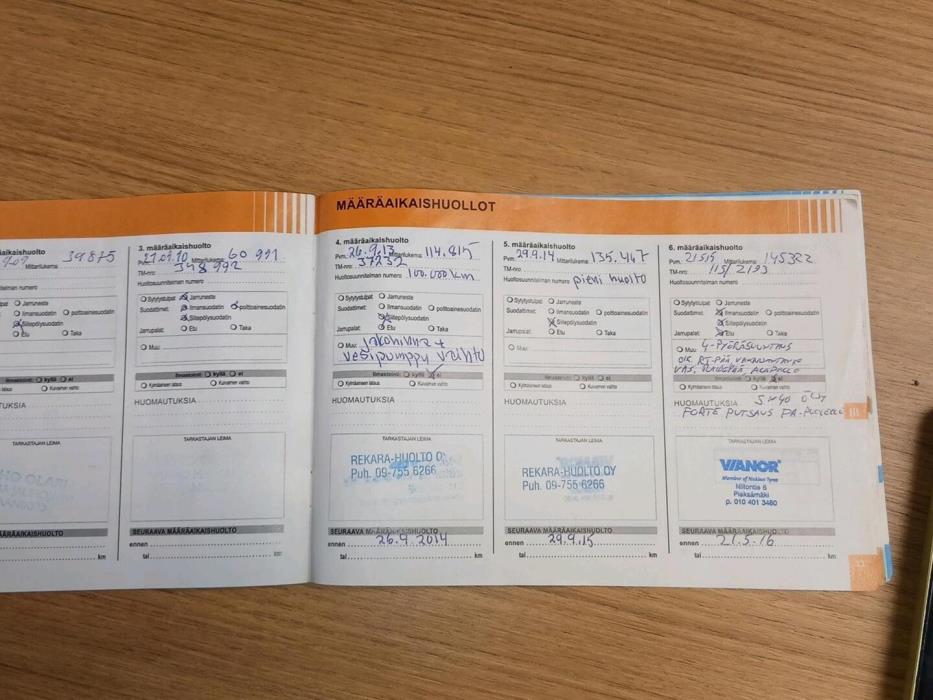 MÄÄRÄAIKAISHUOLTO
39875
Mittarilukema
TARKASTAJAN LEIMA
km
3. määräaikaishuolto
Pvm. 27.09.10 Mittarilukema 60 991
TM-nro: 348 992
Huoltosuunnitelman numero
Sytytystulpat Jarruneste
Suodattimet: Ilmansuodatin polttoainesuodatin
Siitepölysuodatin
Jarrupalat: Etu Taka
Muu:
Ilmastointi: kyllä ei
Kylmäaineen lataus Kuivaimen vaihto
HUOMAUTUKSIA
TARKASTAJAN LEIMA
SEURAAVA MÄÄRÄAIKAISHUOLTO
ennen
tai km
MÄÄRÄAIKAISHUOLLOT
4. määräaikaishuolto
Pvm. 26.9.13 Mittarilukema 114.815
TM-nro: 37232
Huoltosuunnitelman numero 100.000 km
Sytytystulpat Jarruneste
Suodattimet: Ilmansuodatin polttoainesuodatin
Siitepölysuodatin
Jarrupalat: Etu Taka
Muu: jakohihna +
vesipumppu vaihto
Ilmastointi: kyllä ei
Kylmäaineen lataus Kuivaimen vaihto
HUOMAUTUKSIA
TARKASTAJAN LEIMA
REKARA-HUOLTO OY
Puh. 09-755 6266
SEURAAVA MÄÄRÄAIKAISHUOLTO
ennen 26.9.2014
tai km
5. määräaikaishuolto
Pvm. 29.9.14 Mittarilukema 135.447
TM-nro:
Huoltosuunnitelman numero pieni huolto
Sytytystulpat Jarruneste
Suodattimet: Ilmansuodatin polttoainesuodatin
Siitepölysuodatin
Jarrupalat: Etu Taka
Muu:
Ilmastointi: kyllä ei
Kylmäaineen lataus Kuivaimen vaihto
HUOMAUTUKSIA
TARKASTAJAN LEIMA
REKARA-HUOLTO OY
Puh. 09-755 6266
SEURAAVA MÄÄRÄAIKAISHUOLTO
ennen 29.9.15
tai km
6. määräaikaishuolto
Pvm. 21.5.15 Mittarilukema 145322
TM-nro: 115/2193
Huoltosuunnitelman numero
Sytytystulpat Jarruneste
Suodattimet: Ilmansuodatin polttoainesuodatin
Siitepölysuodatin
Jarrupalat: Etu Taka
Muu: 4-PYÖRÄSUUNTAUS
OIK. RT-PÄÄ,
VAS. ALAPALLO
Ilmastointi: kyllä ei
Kylmäaineen lataus Kuivaimen vaihto
HUOMAUTUKSIA 5W40 ÖLJY
FORTE PUTSAUS
III
TARKASTAJAN LEIMA
VIANOR
Member of Nokian Tyres
Niitontie 6
Pieksämäki
p. 010 401 3460
SEURAAVA MÄÄRÄAIKAISHUOLTO
ennen 21.5.16
tai km